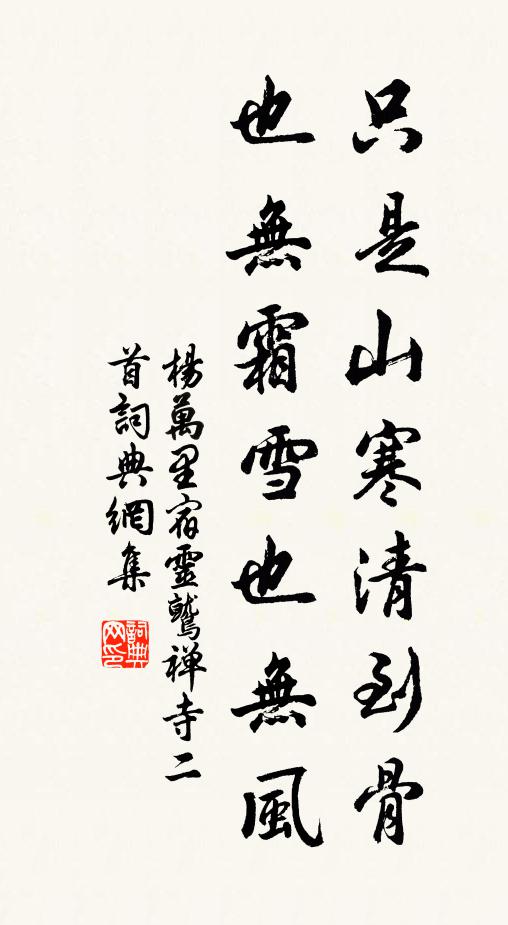 只是山寒清到骨
也無霜雪也無風
楊萬里宿靈鷲禅寺二
首詞典網集
詞典
网印